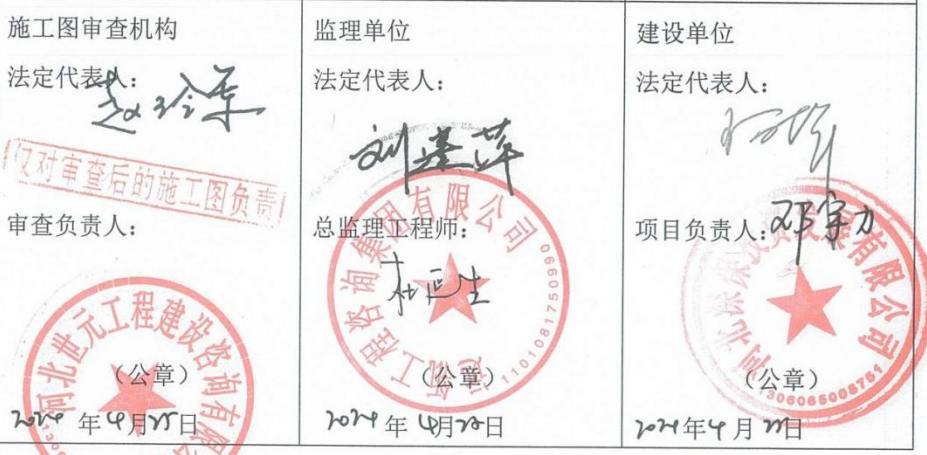 施工图审查机构
法定代表人：
赵玲军
仅对审查后的施工图负责
审查负责人：
河北世元工程建设咨询有限
（公章）
2024年4月25日
监理单位
法定代表人：
总监理工程师：
杜延生
工程咨询集团有限公司
1101081750960
（公章）
2024年4月
日
建设单位
法定代表人：
项目负责人：邓宇力
发展有限公司
1306065008751
（公章）
2024年4月
日